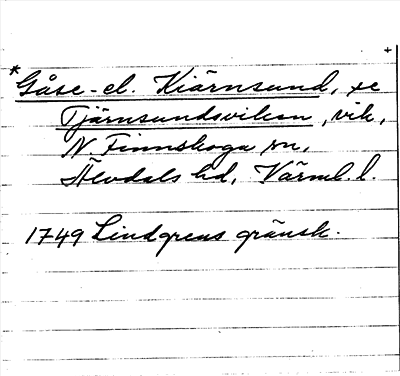 *Gåse- el. Kiärnsund, se
Tjärnsundsviken, vik,
N Finnskoga sn,
Älvdals hd, Värml. l.
1749 Lindgrens gränsk.